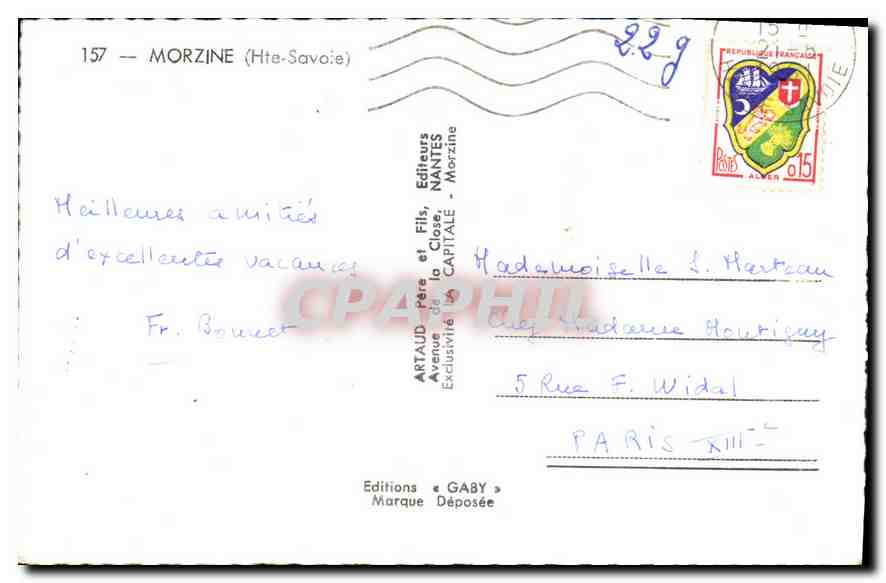 157 — MORZINE (Hte-Savoie)
22g
REPUBLIQUE FRANÇAISE
POSTES
ALGER
0,15
Meilleures amitiés
d'excellentes vacances
Fr. Bonnet
ARTAUD Père et Fils, Editeurs
Avenue de la Close, NANTES
Exclusivité LA CAPITALE - Morzine
Mademoiselle S. Marteau
chez Madame Montigny
5 Rue F. Widal
PARIS XIIIe
CPAPHIL
Editions « GABY »
Marque Déposée